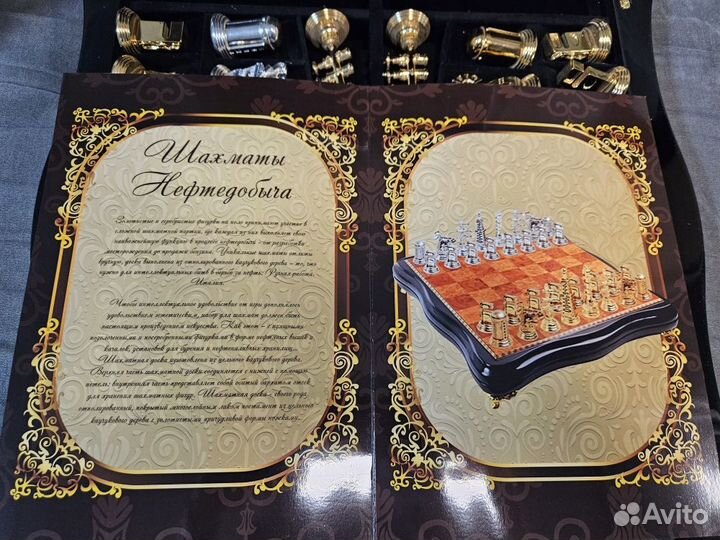 Шахматы
Нефтедобыча
Золотистые и серебристые фигуры на поле принимают участие в
сложной шахматной партии, где каждая из них выполняет свою
наиважнейшую функцию в процессе нефтедобычи - от разработки
месторождения до продажи бензина. Уникальные шахматы отлиты
вручную, доска выполнена из отполированного каучукового дерева – то, что
нужно для интеллектуальных битв в борьбе за нефть. Ручная работа,
Италия.
Чтобы интеллектуальное удовольствие от игры дополнялось
удовольствием эстетическим, набор для шахмат должен быть
настоящим произведением искусства. Как этот – с изящными
позолоченными и посеребренными фигурками в форме нефтяных вышек и
качалок, установок для бурения и нефтеналивных хранилищ.
Шахматная доска изготовлена из цельного каучукового дерева.
Верхняя часть шахматной доски соединяется с нижней с помощью
петель: внутренняя часть представляет собой обитый бархатом отсек
для хранения шахматных фигур. Шахматная доска – своего рода
отполированный, покрытый многослойным лаком постамент из цельного
каучукового дерева с золотистыми причудливой формы ножками.
Avito